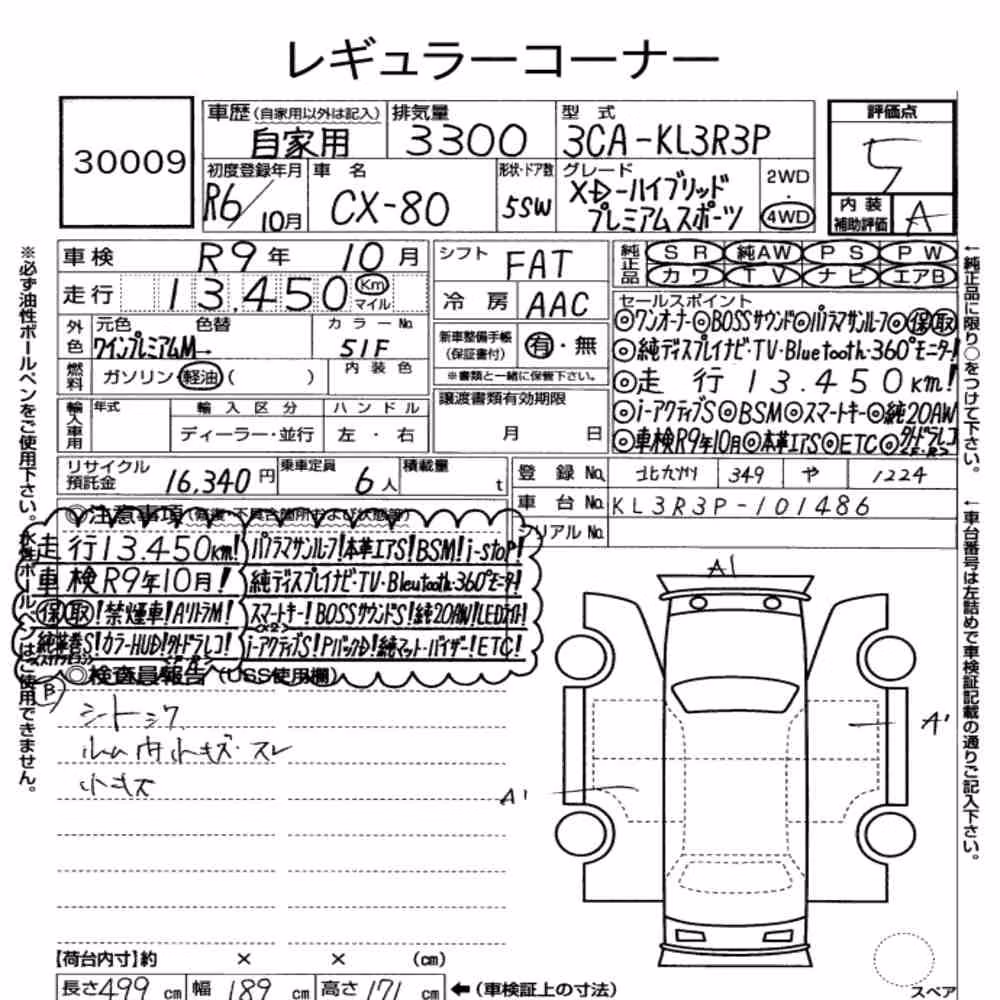 レギュラーコーナー
30009
車歴(自家用以外は記入)
自家用
排気量
3300
型式
3CA-KL3R3P
評価点
5
初度登録年月
R6/10月
車名
CX-80
形状・ドア数
5SW
グレード
XD-ハイブリッド
プレミアムスポーツ
2WD
・
4WD
内装
補助評価
A
車検 R9年 10月
走行 13,450 Km マイル
シフト FAT
冷房 AAC
純正品
SR 純AW PS PW
カワ TV ナビ エアB
セールスポイント
◎ワンオーナー◎BOSSサウンド◎パノラマサンルーフ◎保取
◎純ディスプレイナビ・TV・Bluetooth・360°モニター!
◎走行13.450km!
◎i-アクティブS◎BSM◎スマートキー◎純20AW
◎車検R9年10月◎本革エアS◎ETC◎外ドラレコ
外色
元色 色替
ワインプレミアムM→
カラーNo.
51F
燃料
ガソリン・軽油( )
内装色
新車整備手帳
(保証書付)
有・無
※書類と一緒に保管下さい。
輸入車用
年式
輸入区分
ハンドル
ディーラー・並行
左・右
譲渡書類有効期限
月 日
リサイクル
預託金
16,340円
乗車定員
6人
積載量
t
登録No. 北九州 349 や 1224
車台No. KL3R3P-101486
シリアルNo.
◎注意事項(無償・不具合箇所および状態等)
走行13.450km!パノラマサンルーフ!本革エアS!BSM!i-stop!
車検R9年10月!純ディスプレイナビ・TV・Bleutooth・360°モニタ!
保取!禁煙車!Aリトラm!スマートキー!BOSSサウンドS!純20AW!LEDライト!
純革巻S!カラーHUD!外ドラレコ!i-アクティブS!Pバックドア!純マット・バイザー!ETC!
◎検査員報告(USS使用欄)
B
シートシワ
ルーム内小キズ・スレ
小キズ
A1
A1
A1
【荷台内寸】約 × × (cm)
長さ499cm 幅189cm 高さ171cm ←(車検証上の寸法)
スペア
※必ず油性ボールペンをご使用下さい。水性ボールペンはご使用できません。
←純正品に限り○をつけて下さい。
←車台番号は左詰めで車検証記載の通りご記入下さい。